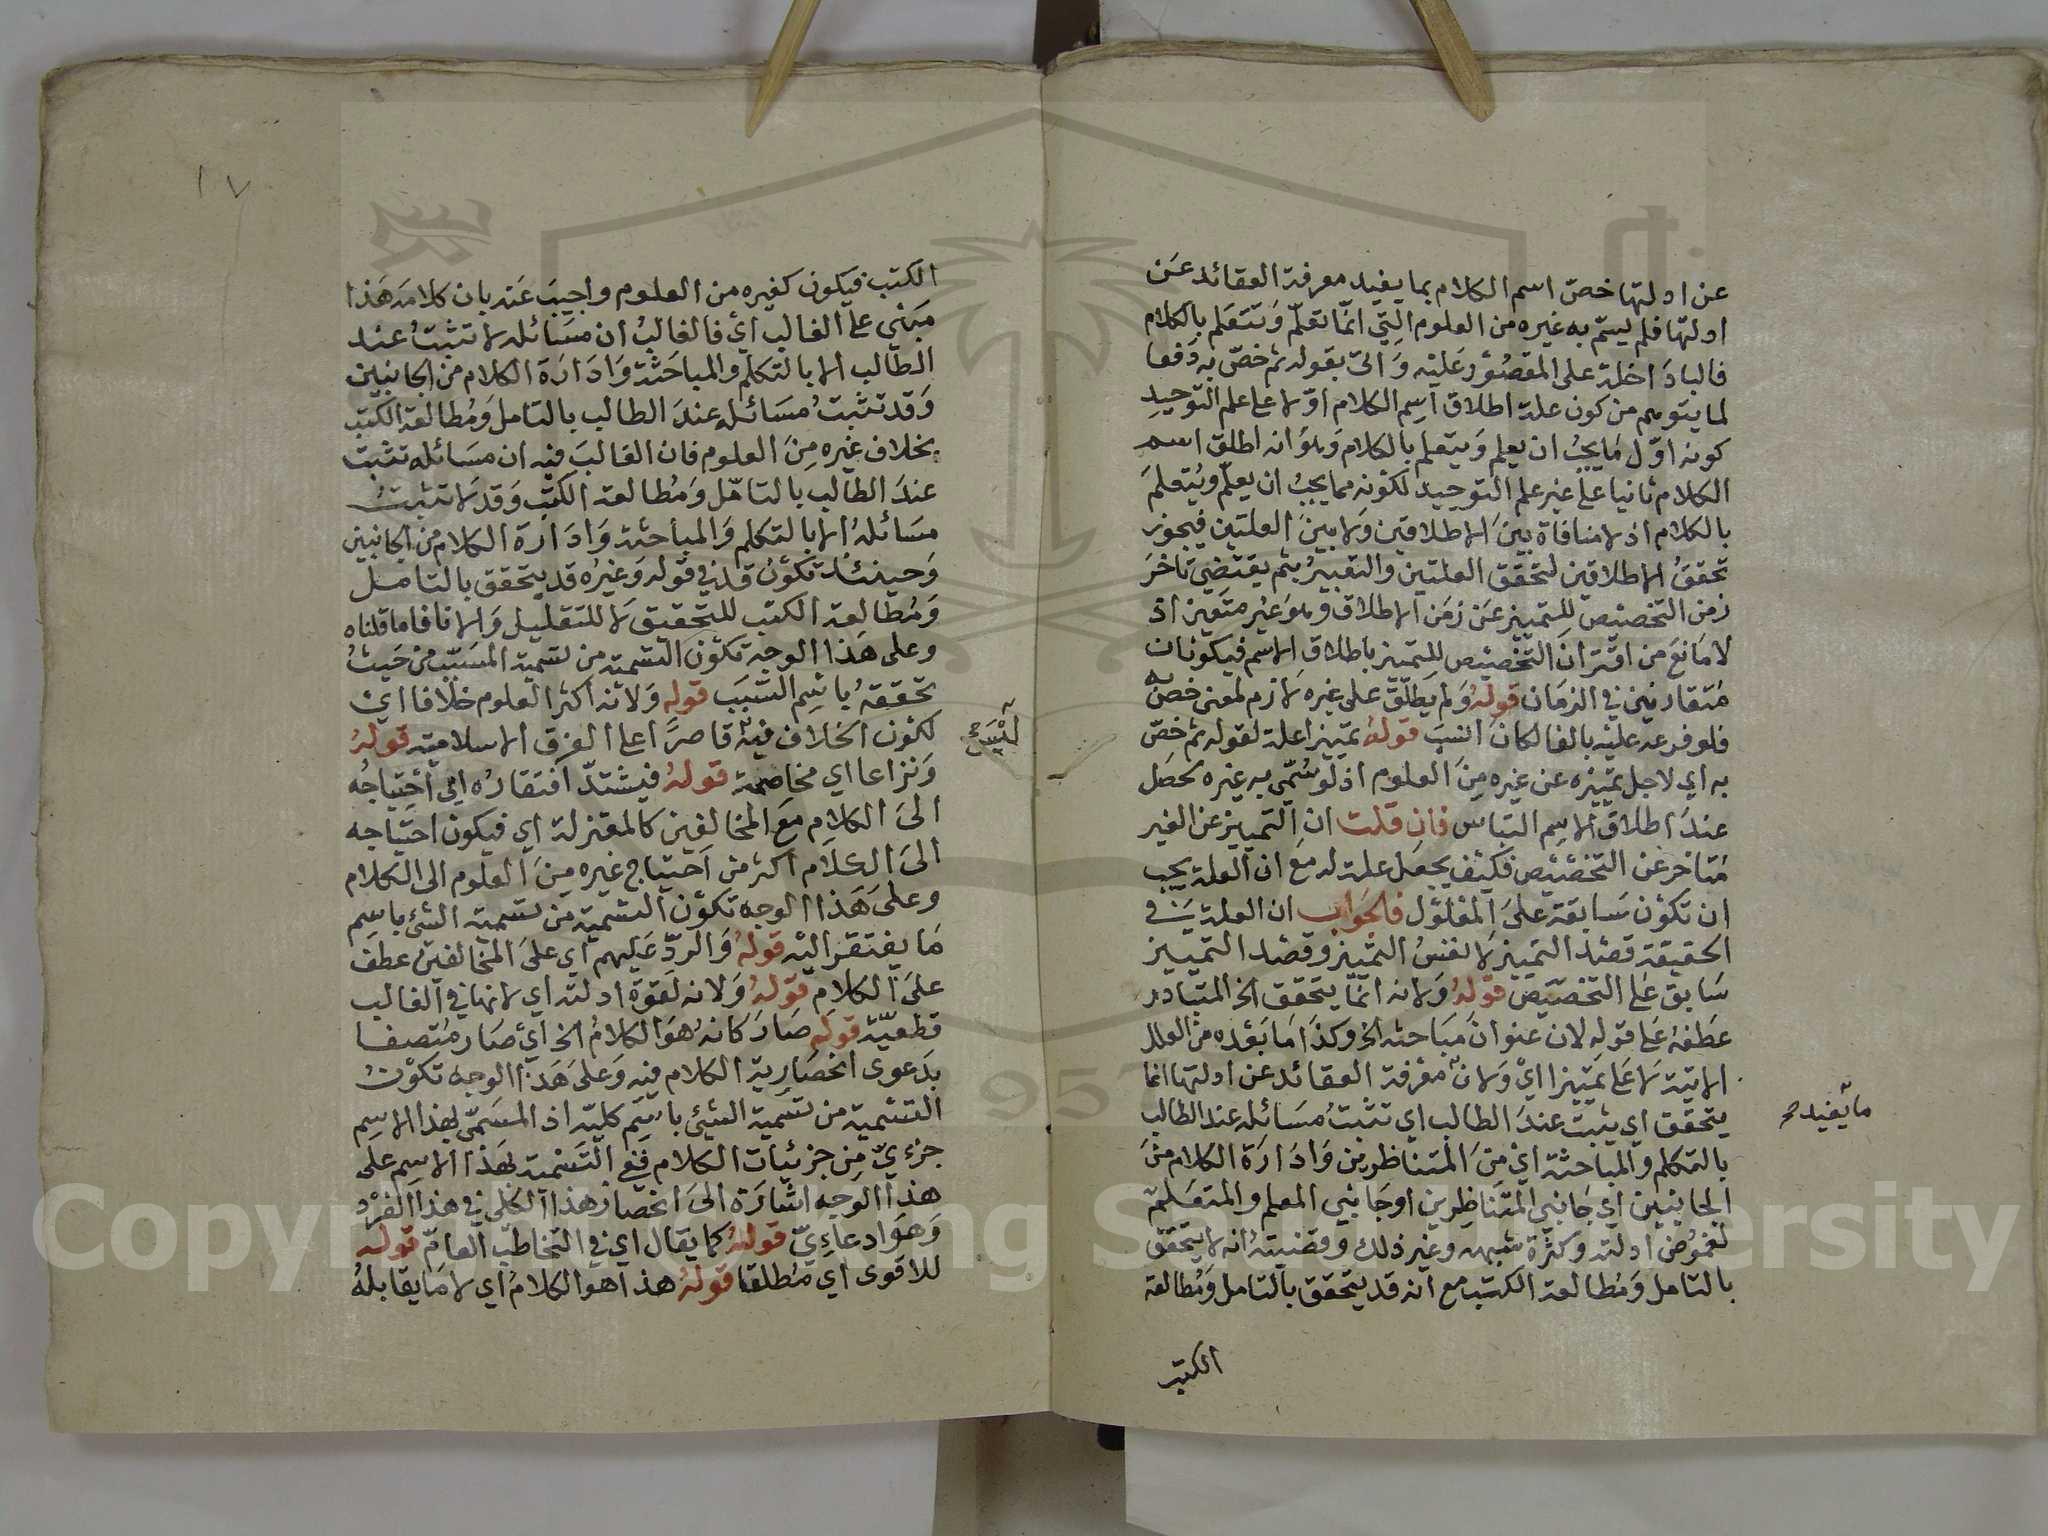 عن ادلتها خص اسم الكلام بما يفيد معرفة العقائد عن
ادلتها فلم يسم به غيره من العلوم التي انما تعلم وتتعلم بالكلام
فالباداخلة على المقصور عليه واتى بقوله ثم خص به دفعا
لما يتوهم من كون علة اطلاق اسم الكلام اولا على علم التوحيد
كونه اول ما يجب ان يعلم ويتعلم بالكلام وهو انه اطلق اسم
الكلام ثانيا على غير علم التوحيد لكونه مما يجب ان يعلم ويتعلم
بالكلام اذ لا منافاة بين الاطلاقين ولا بين العلتين فيجوز
تحقق الاطلاقين لتحقق العلتين والتعبير بثم يقتضي تاخر
زمن التخصيص للتمييز عن زمن الاطلاق وهو غير متعين اذ
لا مانع من اقتران التخصيص للتمييز باطلاق الاسم فيكونان
متقارنين في الزمان قوله ولم يطلق على غيره لازم لمعنى خص به
فلو فرعه عليه بالفا لكان انسب قوله تمييزا علة لقوله ثم خص
به اي لاجل تمييزه عن غيره من العلوم اذ لو سمي به غيره لحصل
عند اطلاق الاسم التباس فان قلت ان التمييز عن الغير
متاخر عن التخصيص فكيف يجعل علة له مع ان العلة يجب
ان تكون سابقة على المعلول فالجواب ان العلة في
الحقيقة قصد التمييز لا نفس التمييز وقصد التمييز
سابق على التخصيص قوله ولانه انما يتحقق الخ المتبادر
عطفه على قوله لان عنوان مباحثه الخ وكذا ما بعده من العلل
الاتية لا على تمييزا اي ولان معرفة العقائد عن ادلتها انما
يتحقق اي يثبت عند الطالب اي تثبت مسائله عند الطالب
بالتكلم والمباحثة اي من المتناظرين وادارة الكلام من
الجانبين اي جانبي المتناظرين اوجانبي المعلم والمتعلم
لغموض ادلته وكثرة شبهه وغير ذلك وقضيته انه لا يتحقق
بالتامل ومطالعة الكتب مع انه قد يتحقق بالتامل ومطالعة
الكتب
ما يفيد صح
١٧
الكتب فيكون كغيره من العلوم واجيب عنه بان كلامه هذا
مبني على الغالب اي فالغالب ان مسائله لا تثبت عند
الطالب الا بالتكلم والمباحثة وادارة الكلام من الجانبين
وقد تثبت مسائله عند الطالب بالتامل ومطالعة الكتب
بخلاف غيره من العلوم فان الغالب فيه ان مسائله تثبت
عند الطالب بالتامل ومطالعة الكتب وقد لا تثبت
مسائله الا بالتكلم والمباحثة وادارة الكلام من الجانبين
وحينئذ تكون قد في قوله وغيره قد يتحقق بالتامل
ومطالعة الكتب للتحقيق لا للتقليل والا نافا ما قلناه
وعلى هذا الوجه تكون التسمية من تسمية المسبب من حيث
تحققه باسم السبب قوله ولانه اكثر العلوم خلافا اي
لكون الخلاف فيه قاصرا على الفرق الاسلامية قوله
ونزاعا اي مخاصمة قوله فيشتد افتقاره اي احتياجه
الى الكلام مع المخالفين كالمعتزلة اي فيكون احتياجه
الى الكلام اكثر من احتياج غيره من العلوم الى الكلام
وعلى هذا الوجه تكون التسمية من تسمية الشئ باسم
ما يفتقر اليه قوله والرد عليهم اي على المخالفين عطف
على الكلام قوله ولانه لقوة ادلته اي لانها في الغالب
قطعية قوله صار كانه هو الكلام الخ اي صار متصفا
بدعوى انحصارية الكلام فيه وعلى هذا الوجه تكون
التسمية من تسمية الشئ باسم كليه اذ المسمى بهذا الاسم
جزءي من جزئيات الكلام ففي التسمية بهذا الاسم على
هذا الوجه اشارة الى انحصار هذا الكلي في هذا الفرد
وهو ادعاءي قوله كما يقال اي في التخاطب العام قوله
للاقوى اي مطلقا قوله هذا هو الكلام اي لا ما يقابله
Copyright © King Saud University
957